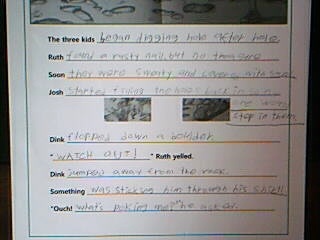 The three kids began digging hole after hole.
Ruth found a rusty nail, but no treasure
Soon they were sweaty and covered with
Josh started filling the holes back in so no
one would
step in them.
Dink flopped down a boulder.
"WATCH OUT!" Ruth yelled.
Dink jumped away from the rock.
Something was sticking him through his shirt.
"Ouch! what's poking me?" he asked.